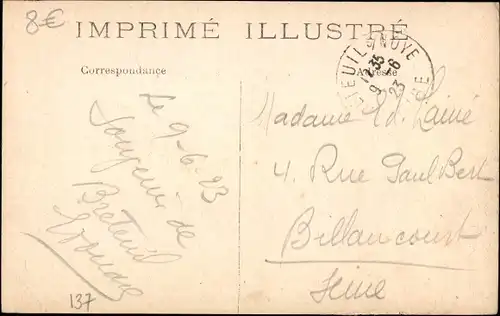 8€
IMPRIMÉ ILLUSTRÉ
Correspondance
Adresse
12 35
9 -6
23
Le 9-6-23
Souvenir de
Breteuil
137
Madame Ed. Lainé
4. Rue Paul Bert
Billancourt
Seine